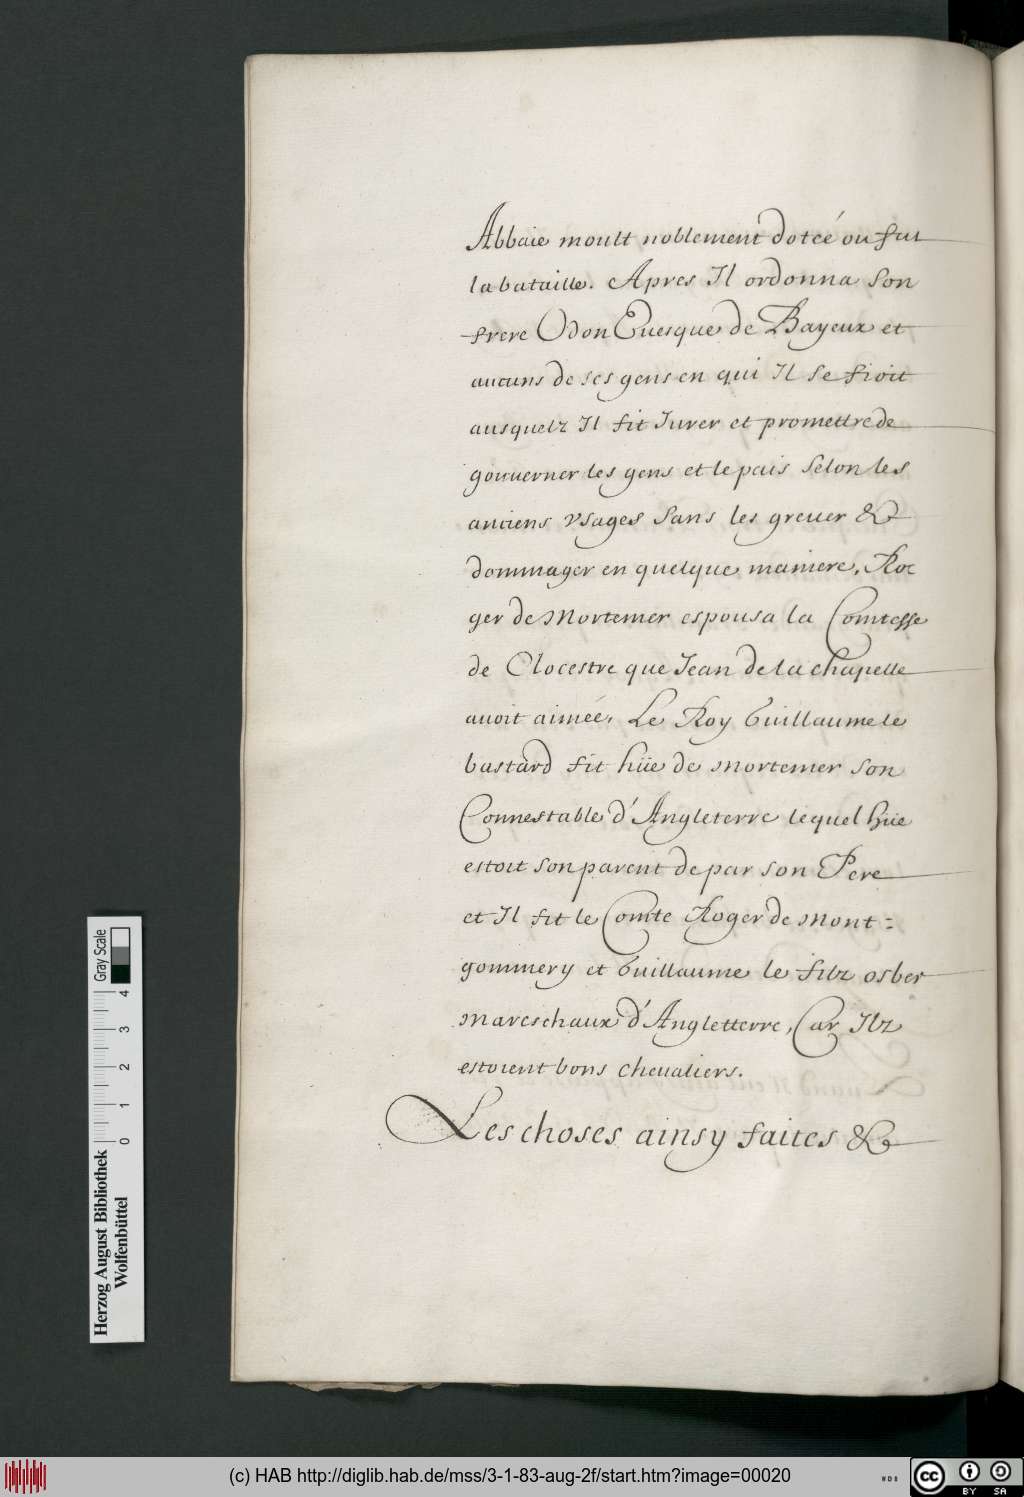 Abbaie moult noblement dotée ou fut
la bataille. Apres Il ordonna son
frere Odon Euesque de Bayeux et
aucuns de ses gens en qui Il se fioit
ausquelz Il fit Iurer et promettre de
gouuerner les gens et le pais selon les
anciens vsages sans les greuer &
dommager en quelque maniere, Ro
ger de Mortemer espousa la Comtesse
de Clocestre que Jean de la chapelle
auoit aimée, Le Roy Guillaume le
bastard fit hüe de mortemer son
Connestable d'Angleterre lequel hüe
estoit son parent de par son Pere
et Il fit le Comte Roger de Mont=
gommery et Guillaume le filz osber
mareschaux d'Angletterre, Car Ilz
estoient bons cheualiers.
Les choses ainsy faites &
Gray Scale
0 1 2 3 4
Herzog August Bibliothek
Wolfenbüttel
(c) HAB http://diglib.hab.de/mss/3-1-83-aug-2f/start.htm?image=00020
WDB
cc BY SA